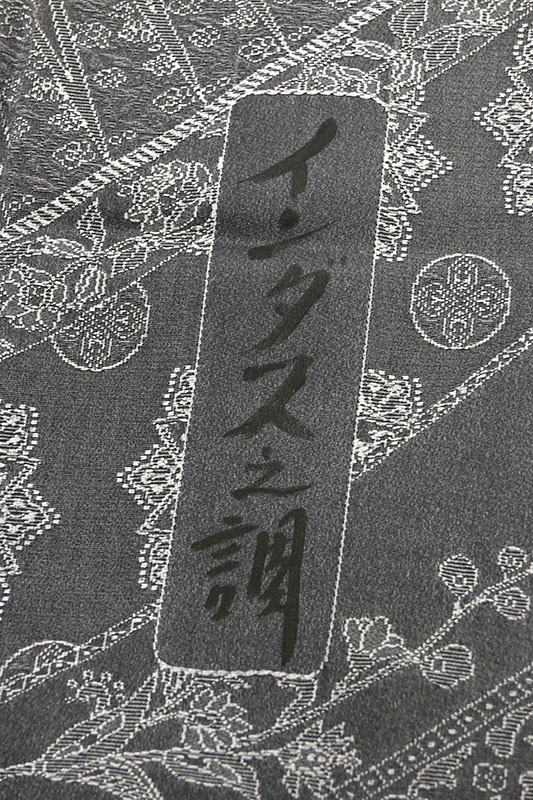 インダス之調